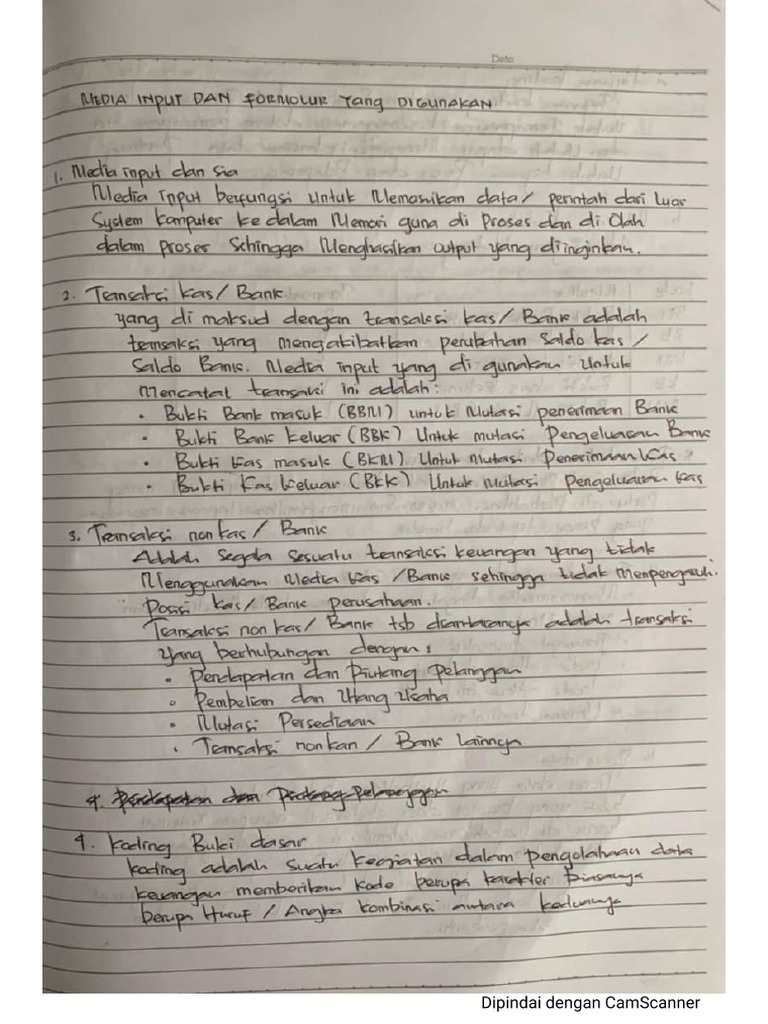 Date
MEDIA INPUT DAN FORMOLUR Yang DIGUNAKAN
1. Media input dan sia
Media Input berfungsi Untuk Memasukan data / perintah dari Luar
System komputer ke dalam Memori guna di Proses dan di Olah
dalam proses Sehingga Menghasilkan output yang diinginkan.
2. Transaksi kas / Bank
yang di maksud dengan transaksi kas / Bank adalah
transaksi yang mengakibatkan perubahan Saldo kas /
Saldo Bank. Media input yang di gunakan Untuk
Mencatat transaksi ini adalah :
• Bukti Bank masuk (BBM) untuk Mutasi penerimaan Bank
• Bukti Bank keluar (BBK) Untuk mutasi Pengeluaran Bank
• Bukti kas masuk (BKM) Untuk Mutasi Penerimaan kas
• Bukti Kas keluar (BKK) Untuk Mutasi pengeluaran kas
3. Transaksi non kas / Bank
Adalah Segala Sesuatu transaksi keuangan yang tidak
Menggunakan Media kas / Bank sehingga tidak menpengaruhi
Posisi kas / Bank perusahaan.
Transaksi non kas / Bank tsb diantaranya adalah transaksi
yang berhubungan dengan :
• Pendapatan dan Piutang Pelanggan
• Pembelian dan Utang Usaha
• Mutasi Persediaan
• Transaksi non kan / Bank Lainnya
4. Pendapatan dan Piutang Pelanggan
4. Koding Buki dasar
koding adalah suatu kegiatan dalam pengolahan data
keuangan memberikan kode berupa karakter biasanya
berupa Huruf / Angka kombinasi antara keduanya
Dipindai dengan CamScanner